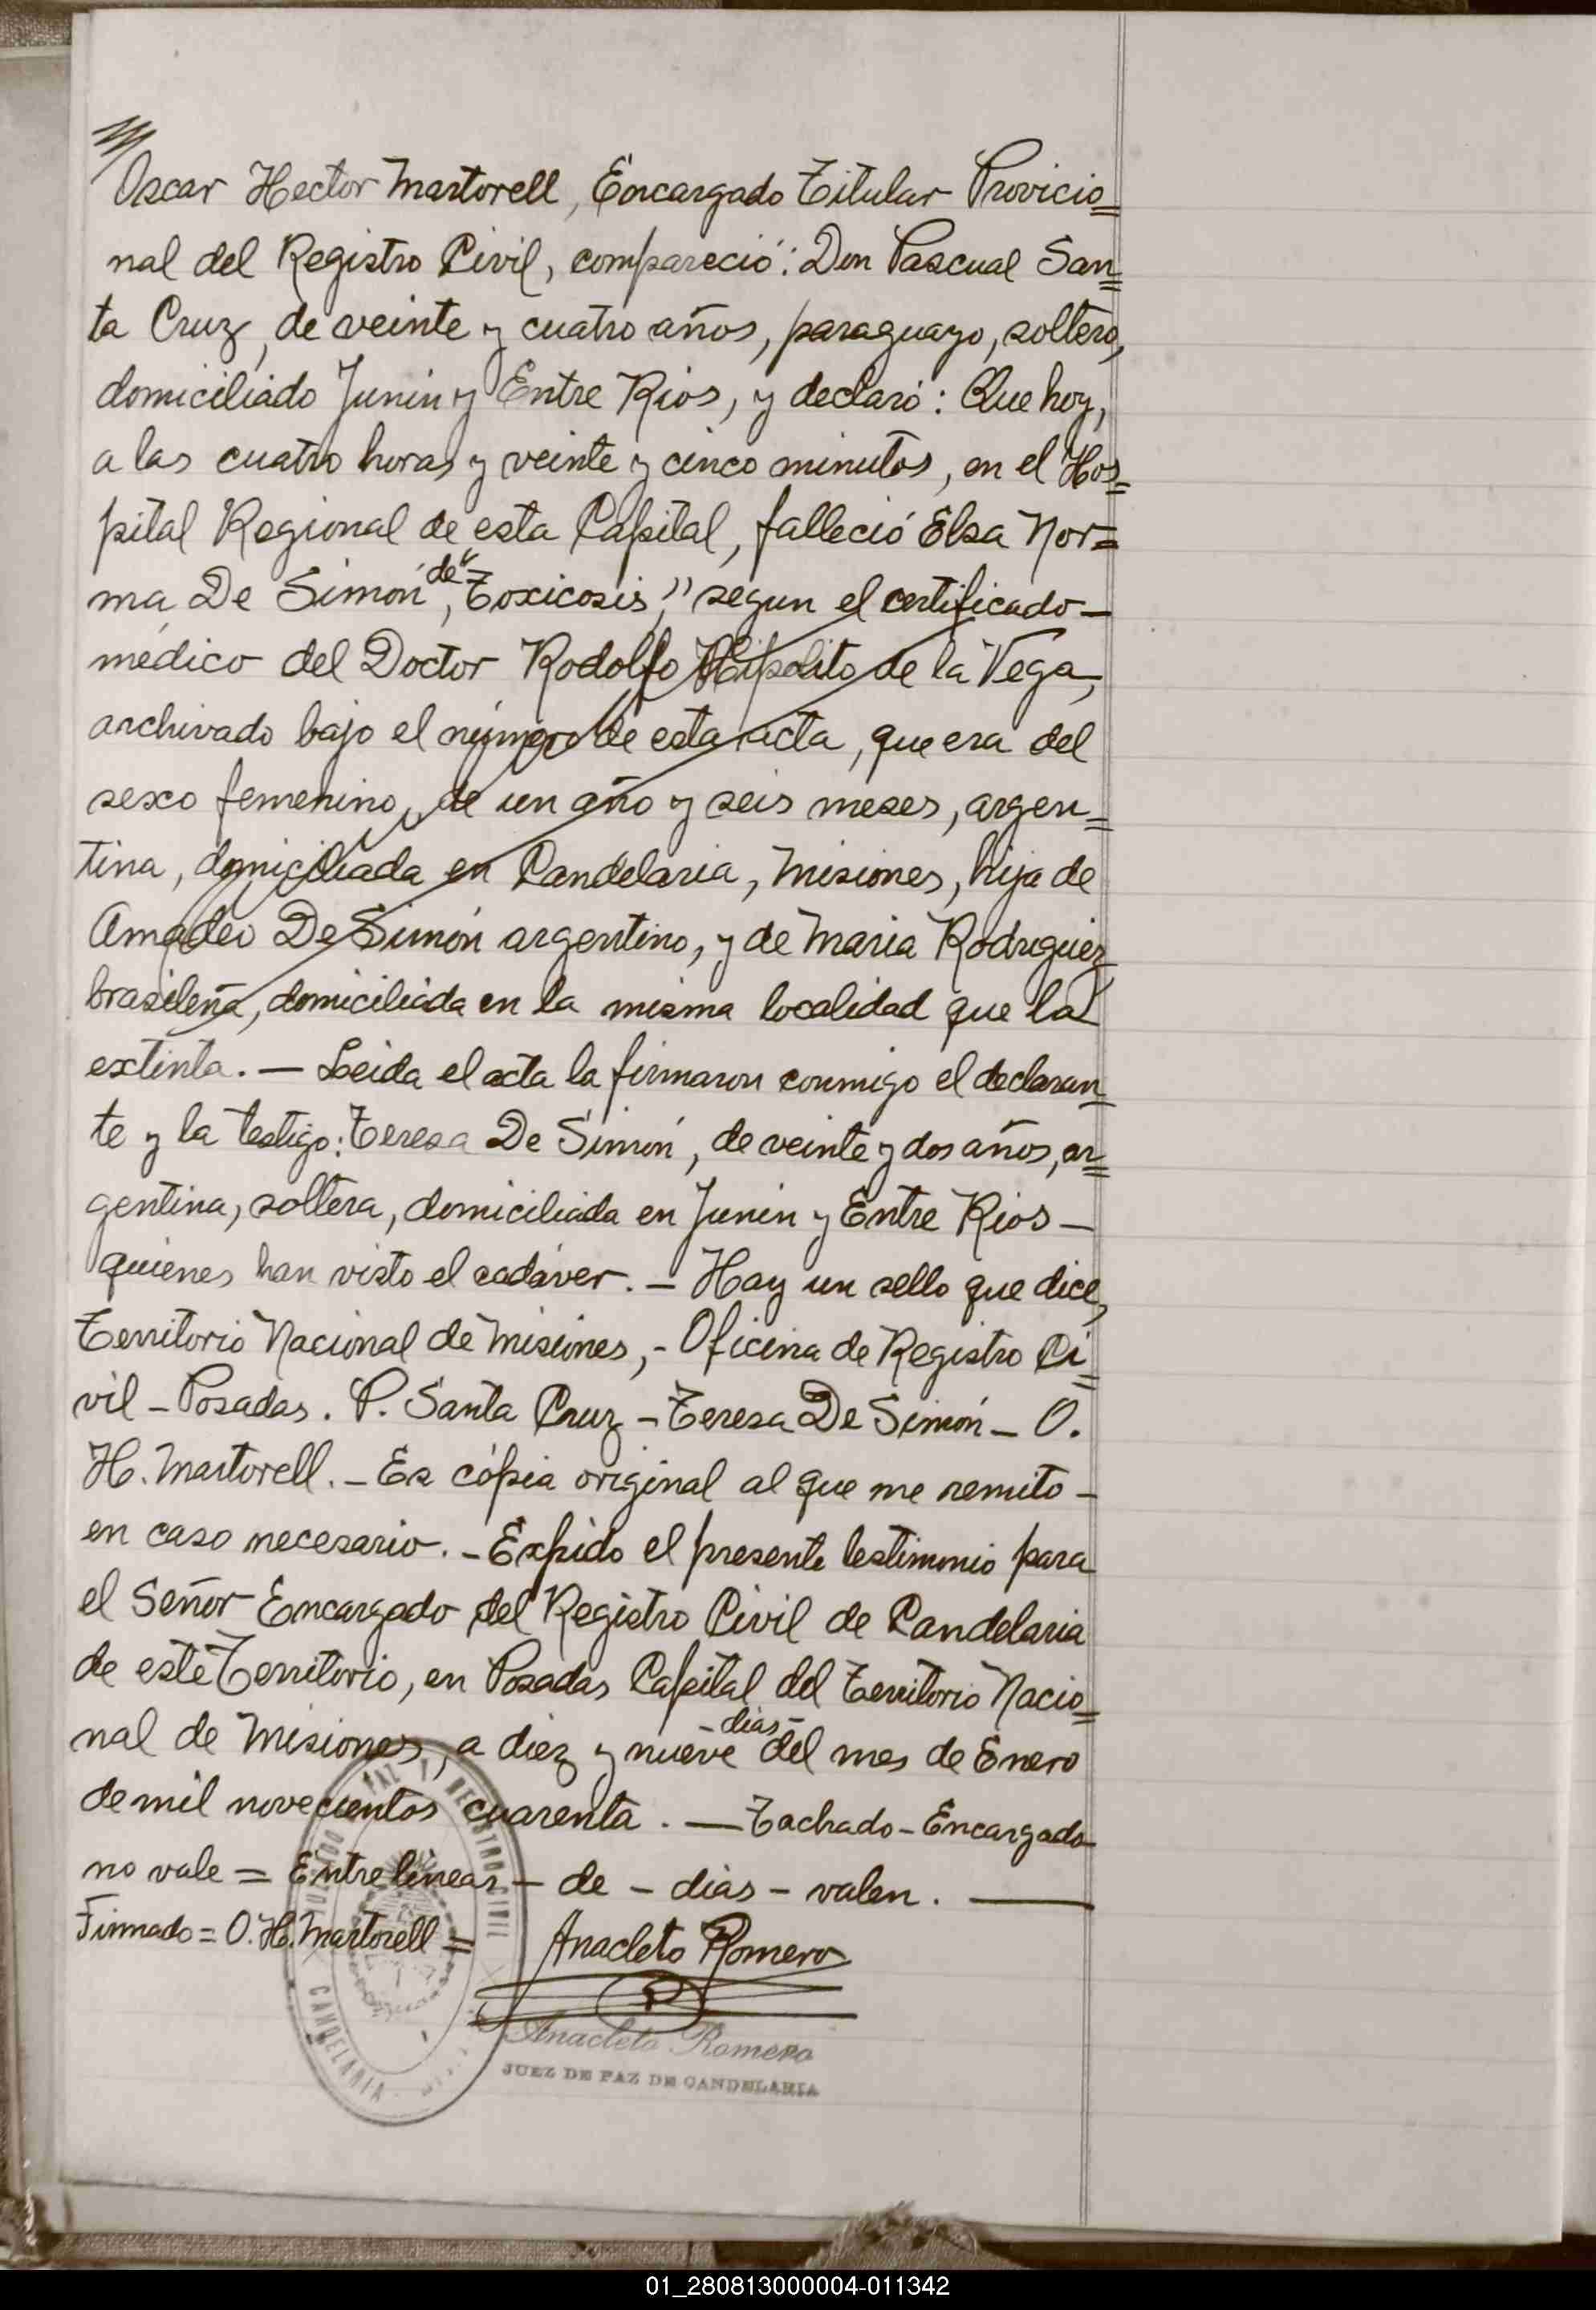 Oscar Hector Martorell, Encargado Titular Provicio=
nal del Registro Civil, compareció: Don Pascual San=
ta Cruz, de veinte y cuatro años, paraguayo, soltero,
domiciliado Junin y Entre Rios, y declaró: Que hoy,
a las cuatro horas y veinte y cinco minutos, en el Hos=
pital Regional de esta Capital, falleció Elsa Nor=
ma De Simón, de "Toxicosis," segun el certificado—
médico del Doctor Rodolfo Hipolito de la Vega,
archivado bajo el número de esta acta, que era del
sexo femenino, de un año y seis meses, argen=
tina, domiciliada en Candelaria, Misiones, hija de
Amadeo De Simón argentino, y de Maria Rodriguez
brasileña, domiciliada en la misma localidad que la
extinta. — Leida el acta la firmaron conmigo el declaran=
te y la testigo: Teresa De Simón, de veinte y dos años, ar=
gentina, soltera, domiciliada en Junin y Entre Rios —
quienes han visto el cadáver. — Hay un sello que dice,
Territorio Nacional de Misiones, - Oficina de Registro Ci=
vil - Posadas. P. Santa Cruz - Teresa De Simón - O.
H. Martorell. - Es cópia original al que me remito -
en caso necesario. - Expido el presente testimonio para
el Señor Encargado del Registro Civil de Candelaria
de este Territorio, en Posadas Capital del Territorio Nacio=
nal de Misiones, a diez y nueve - dias - del mes de Enero
de mil novecientos cuarenta. — Tachado - Encargado
no vale = Entre lineas - de - dias - valen. —
Firmado = O. H. Martorell = Anacleto Romero
Anacleto Romero
JUEZ DE PAZ DE CANDELARIA
JUZGADO DE PAZ Y REGISTRO CIVIL
CANDELARIA
01_280813000004-011342